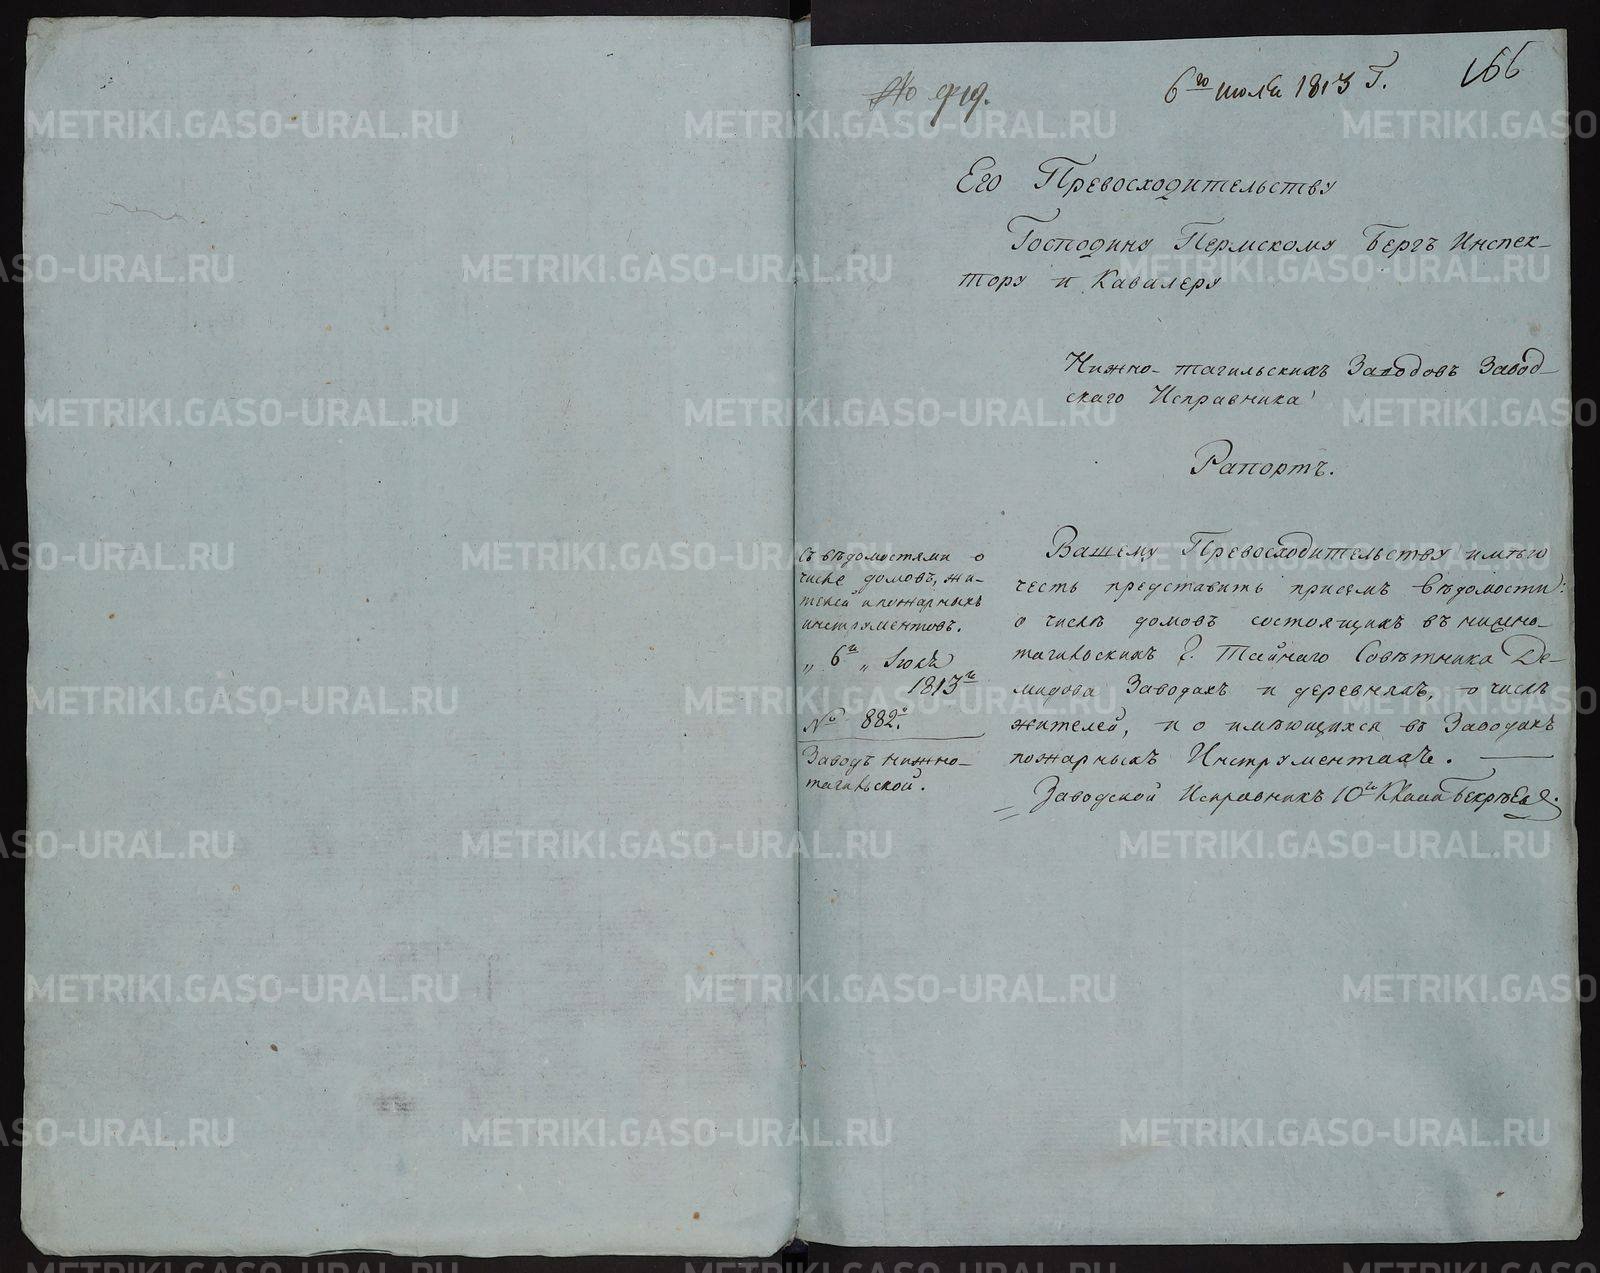 6го июля 1813 Г.
166
Его Превосходительству
Господину Пермскому Бергъ Инспек-
тору и Кавалеру
Нижно-тагильскихъ Заводовъ Завод-
скаго Исправника
Рапортъ.
Съ вѣдомостями о
числе домовъ, жи-
телей и пожарныхъ
инструментовъ.
„ 6го „ Июля
1813го
№ 882.
Заводъ нижно-
тагильской.
Вашему Превосходительству имѣю
честь представить присемъ вѣдомости:
о числѣ домовъ состоящихъ въ нижно-
тагильскихъ Г. Тайнаго Совѣтника Де-
мидова Заводахъ и деревняхъ, о числѣ
жителей, и о имѣющихся въ Заводахъ
пожарныхъ Инструментахъ.
Заводской Исправникъ 10го Класса
METRIKI.GASO-URAL.RU